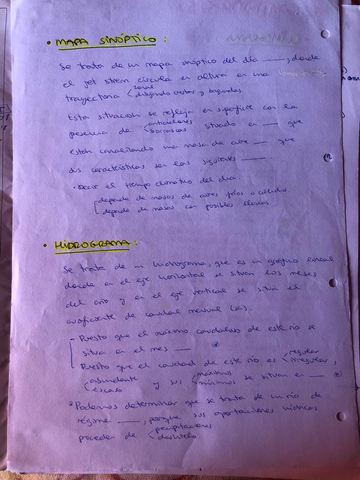 • MAPA SINÓPTICO :
Se trata de un mapa sinóptico del día ___, donde
el jet stream circula en altura en una
trayectoria zonal dibujando crestas y vaguadas.
Esta situación se refleja en superficie con la
presencia de anticiclones borrascas situado en ___ que
están canalizando una masa de aire ___ que
sus características son las siguientes ___
• Decir el tiempo climático del día
depende de masas de aires fríos o cálidos
depende de masas con posibles lluvias.
• HIDROGRAMA :
Se trata de un hidrograma, que es un gráfico lineal
donde en el eje horizontal se sitúan los meses
del año y en el eje vertical se sitúa el
coeficiente de caudal mensual
- Puesto que el máximo caudaloso de este río se
sitúa en el mes ___
- Puesto que el caudal de este río es regular irregular,
abundante escaso y sus máximos mínimos se sitúan en ___
Podemos determinar que se trata de un río de
régimen ___, porque sus aportaciones hídricas
proceden de precipitaciones deshielo